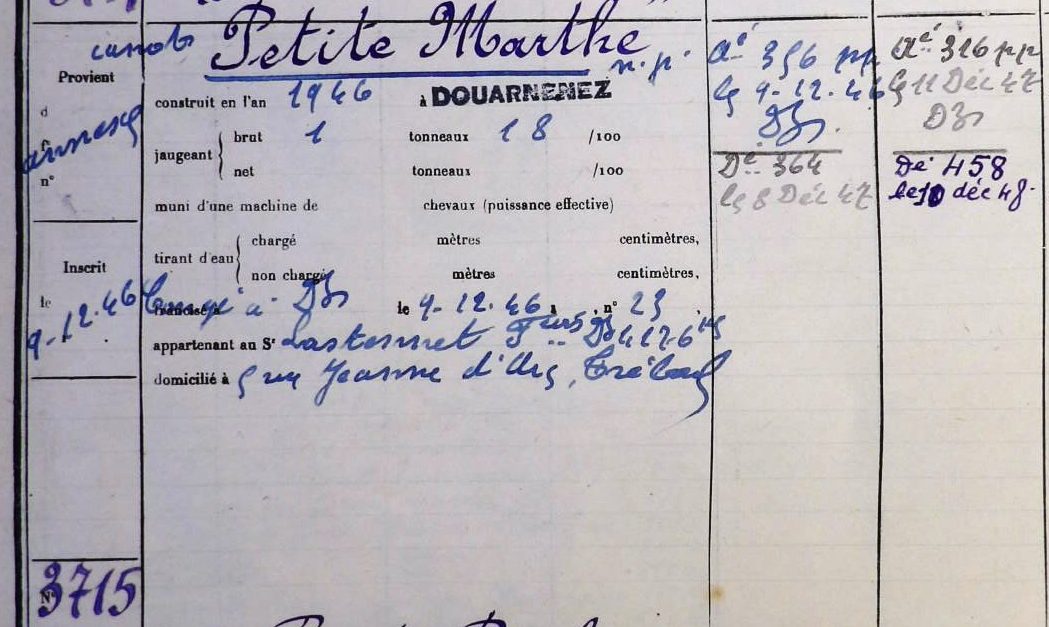 canot Petite Marthe n.p.
Provient
d
annexe
n°
construit en l'an 1946 à DOUARNENEZ
jaugeant { brut 1 tonneaux 18 /100
net tonneaux /100
muni d'une machine de chevaux (puissance effective)
tirant d'eau { chargé mètres centimètres,
non chargé mètres centimètres,
Inscrit
le
9-12-46
Congé à DZ le 9-12-46, n° 23,
appartenant au Sr Lastennet Fçois DZ
domicilié à 5 rue Jeanne d'Arc, Tréboul
Aé 356 pp
le 9-12-46
DZ
Dé 364
le 8 Déc 47
Aé 316 pp
le 11 Déc 47
DZ
Dé 458
le 10 déc 48
N°
3715